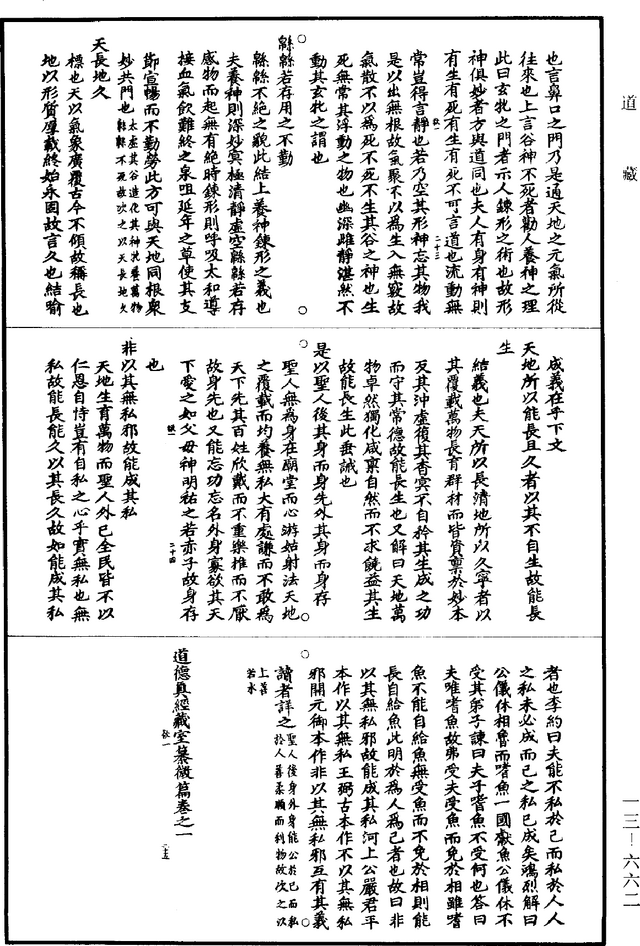 道藏
也言鼻口之門乃是通天地之元氣所從
往來也上言谷神不死者勸人養神之理
此曰玄牝之門者示人鍊形之術也故形
神俱妙者方與道同也夫人有身有神則
有生有死有生有死不可言道也流動無
二十三
常豈得言靜也若乃空其形神忘其物我
是以出無根故氣聚不以為生入無竅故
氣散不以為死不死不生其谷之神也生
死無常其浮動之物也幽深雖靜湛然不
動其玄牝之謂也
緜緜若存用之不勤
緜緜不絕之皃此結上養神鍊形之義也
夫養神則深妙冥極清靜虛空緜緜若存
感物而起無有絕時鍊形則呼吸太和導
接血氣飲難終之泉咀延年之草使其支
節宣暢而不勤勞此方可與天地同根衆
妙共門也太虛其谷造化其神牝養萬物
緜緜不死故次之以天長地久
天長地久
標也天以氣象廣覆古今不傾故稱長也
地以形質厚載終始永固故言久也結喻
成義在乎下文
天地所以能長且久者以其不自生故能長
生
結義也夫天所以長清地所以久寧者以
其覆載萬物長育群材而皆資稟於妙本
及其沖虛復其杳冥不自矜其生成之功
而守其常德故能長生也又解曰天地萬
物卓然獨化咸稟自然而不求饒益其生
故能長生此垂誡也
是以聖人後其身而身先外其身而身存
聖人無為身在廟堂而心游姑射法天地
之覆載而均養無私大有處謙而不敢為
天下先其百姓欣戴而不重樂推而不厭
故身先也又能忘功忘名外身寡欲其天
下愛之如父母神明祐之若赤子故身存
二十四
也
非以其無私邪故能成其私
天地生育萬物而聖人外己全民皆不以
仁恩自恃豈有自私之心乎實無私也無
私故能長能久以其長久故如能成其私
者也李約曰夫能不私於己而私於人人
之私未必成而己之私已成矣鴻烈解曰
公儀休相魯而嗜魚一國獻魚公儀休不
受其弟子諫曰夫子嗜魚不受何也答曰
夫唯嗜魚故弗受夫受魚而免於相雖嗜
魚不能自給魚無受魚而不免於相則能
長自給魚此明於為人為己者也故曰非
以其無私邪故能成其私河上公嚴君平
本作以其無私王弼古本作不以其無私
邪開元御本作非以其無私邪互有其義
讀者詳之聖人後身外身能公於己而私
於人善柔順而利物故次之以
上善
若水
道德真經藏室纂微篇卷之一
二十五
一三-六六二